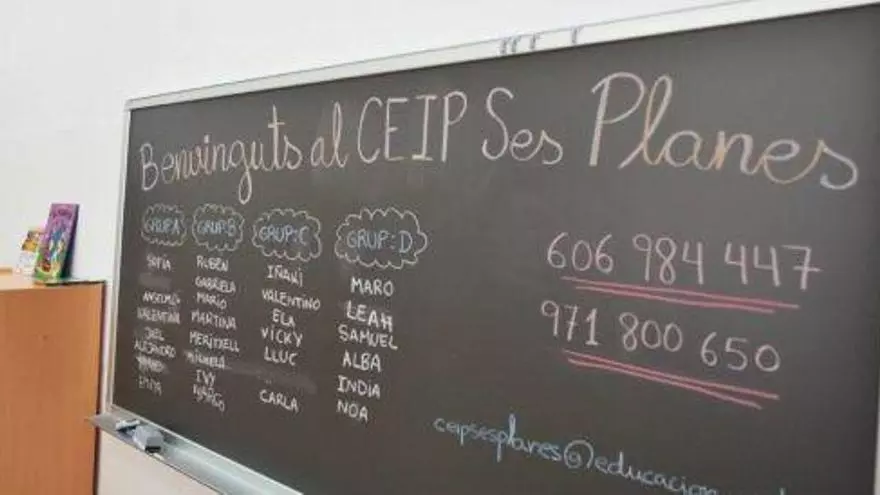 Benvinguts al CEIP Ses Planes
GRUP:A
SOFÍA
VALENTINA
JAEL
ALEJANDRO
GRUP:B
RUBEN
GABRIELA
MARIO
MARTINA
MERITXELL
IVY
MARGO
GRUP:C
IÑAKI
VALENTINO
ELA
VICKY
LLUC
CARLA
GRUP:D
MARO
LEAH
SAMUEL
ALBA
INDIA
NOA
606 984 447
971 800 650
ceipsesplanes@educacio